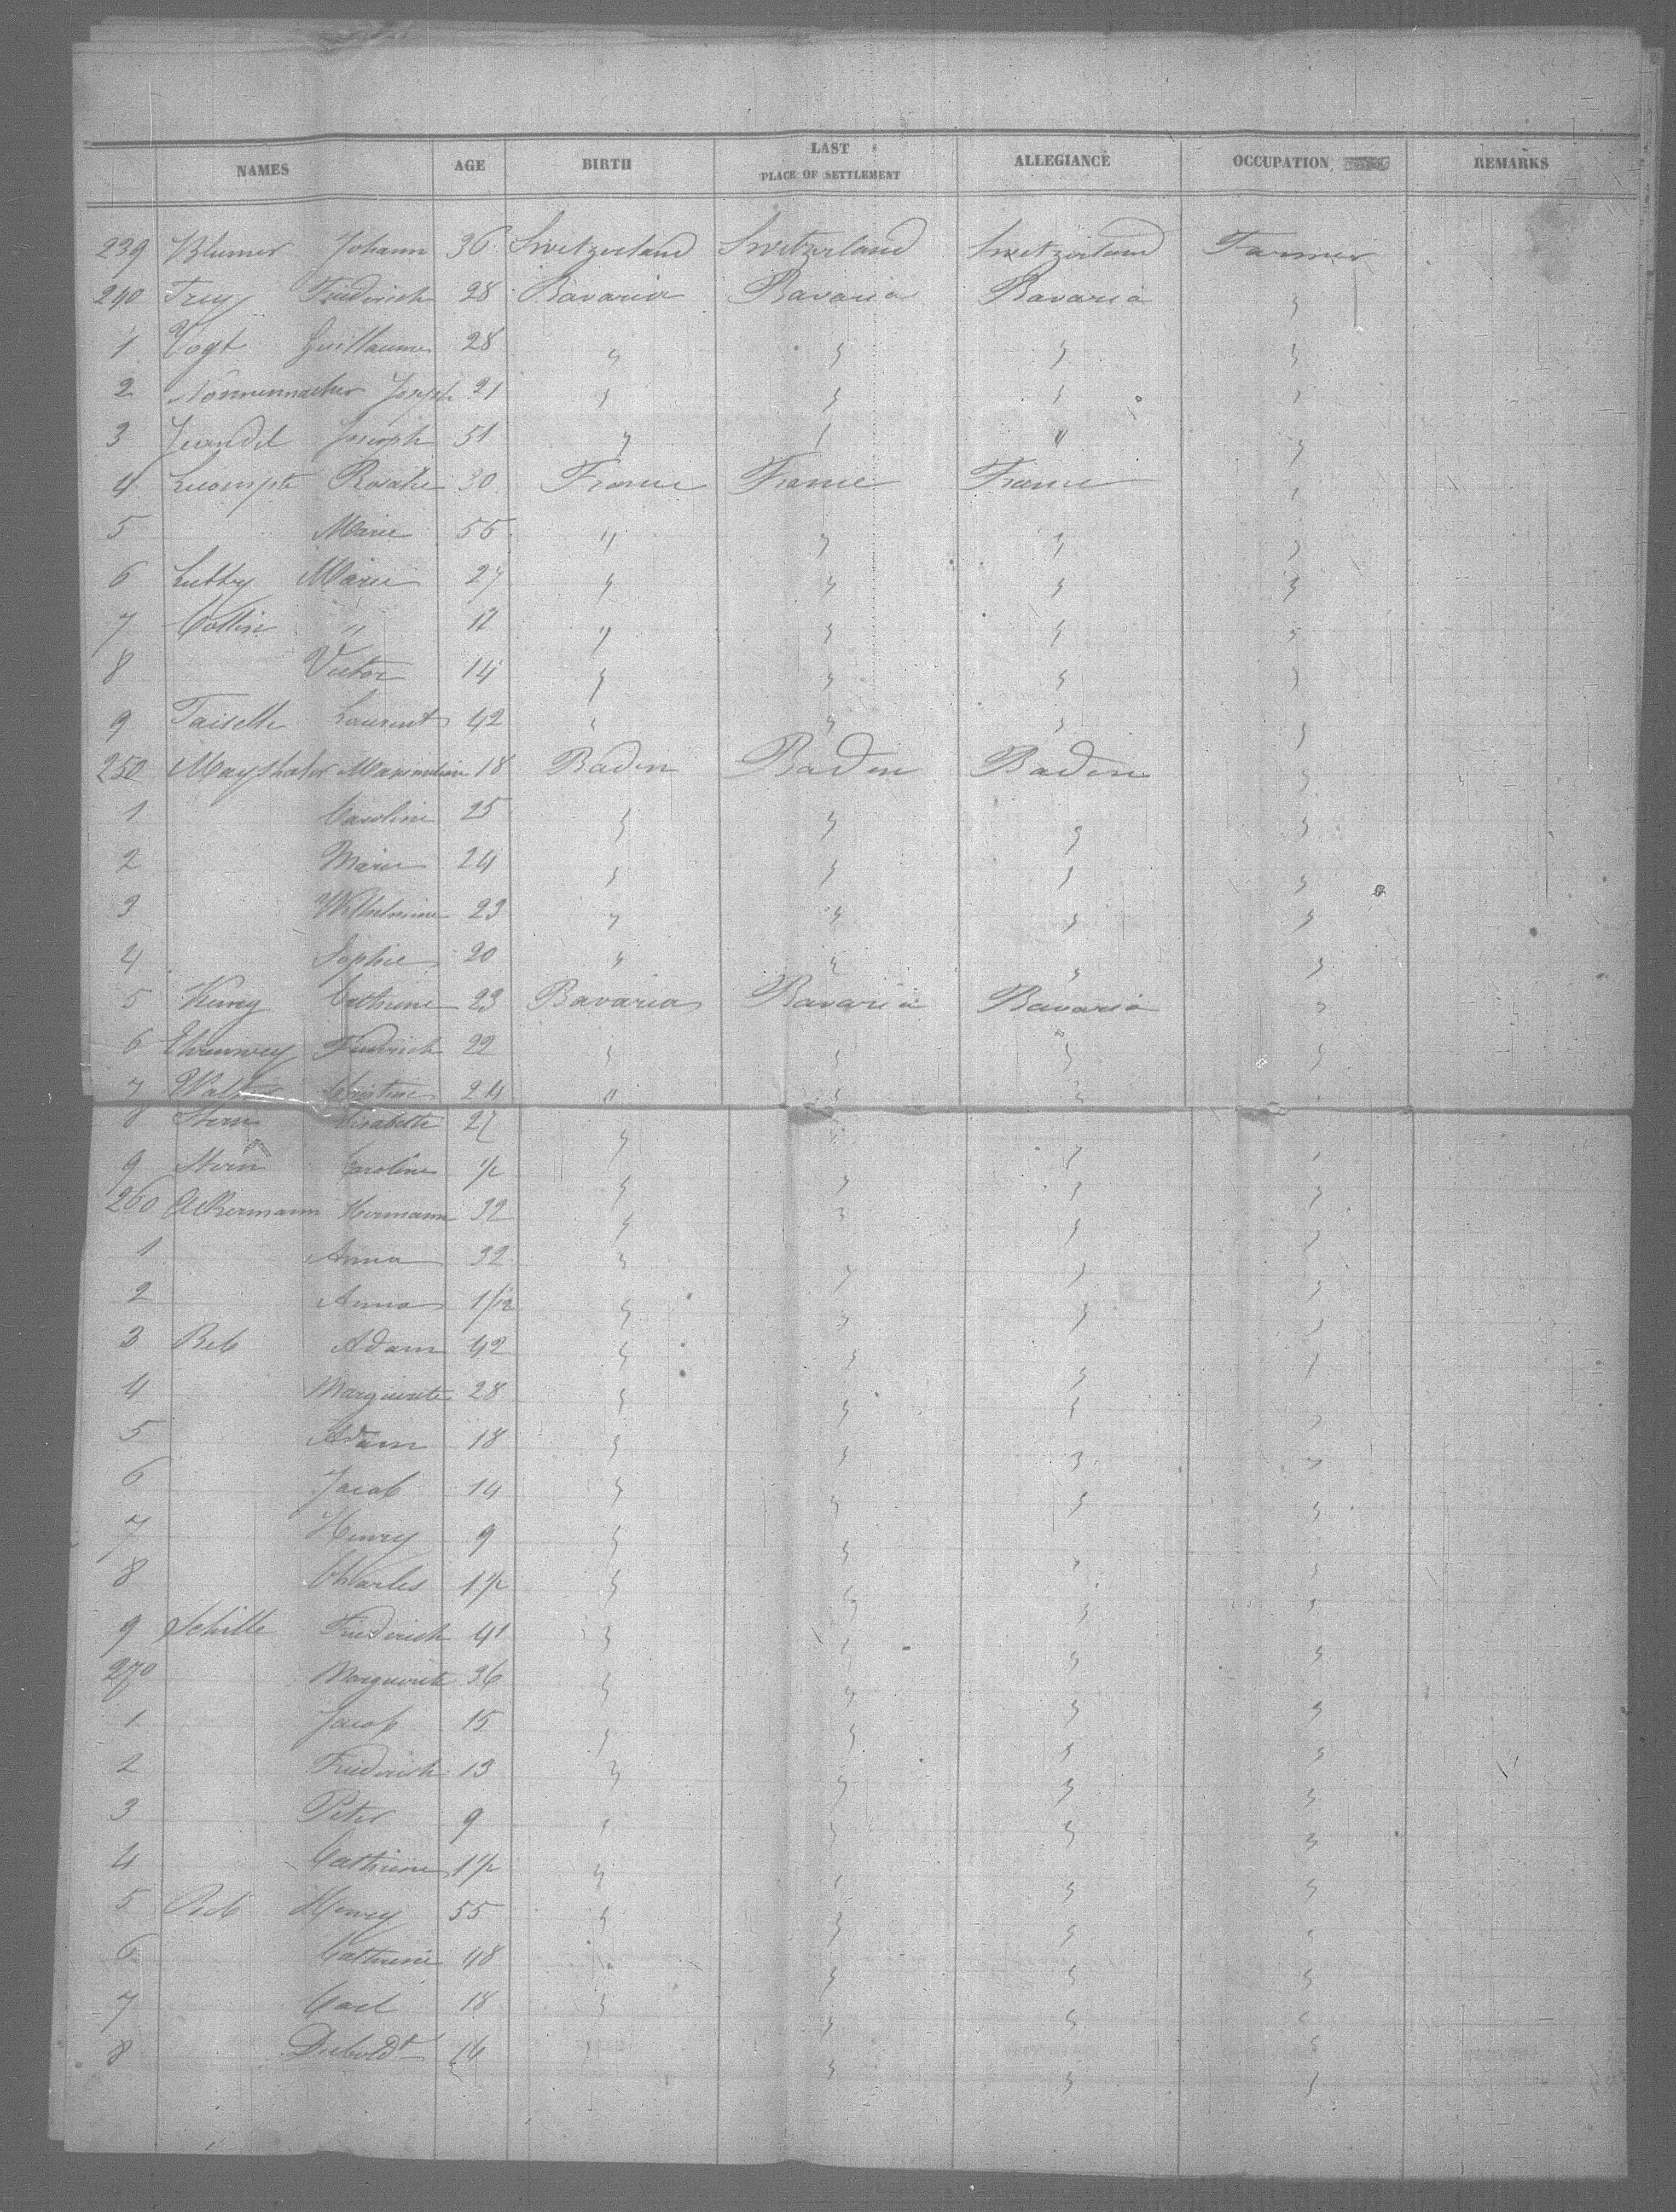 NAMES AGE BIRTH LAST PLACE OF SETTLEMENT ALLEGIANCE OCCUPATION REMARKS
239 Blumer Johann 36 Switzerland Switzerland Switzerland Farmer
240 Frey Friederich 28 Bavaria Bavaria Bavaria "
1 Vogt Guillaume 28 " " " "
2 Nonnenmacher Joseph 21 " " " "
3 Jeandel Joseph 51 " " " "
4 Lecompte Rosalie 30 France France France "
5 Marie 55 " " " "
6 Marie 27 " " " "
7 Collin " 12 " " " "
8 Victor 14 " " " "
9 Laurent 42 " " " "
250 Maythaler Maximilian 18 Baden Baden Baden "
1 Caroline 25 " " " "
2 Marie 24 " " " "
3 Wilhelmine 23 " " " "
4 Sophie 20 " " " "
5 Cathrine 23 Bavaria Bavaria Bavaria "
6 Friedrich 22 " " " "
7 Walter Christine 24 " " " "
8 Stern Elisabeth 27 " " " "
9 Stern Caroline 1/2 " " " "
260 Ackermann Hermann 32 " " " "
1 Anna 32 " " " "
2 Anna 1/12 " " " "
3 Beb Adam 42 " " " "
4 Marguerite 28 " " " "
5 Adam 18 " " " "
6 Jacob 14 " " " "
7 Henry 9 " " " "
8 Charles 1 1/2 " " " "
9 Schille Friederich 41 " " " "
270 Marguerite 36 " " " "
1 Jacob 15 " " " "
2 Friederich 13 " " " "
3 Peter 9 " " " "
4 Cathrine 1 1/2 " " " "
5 Henry 55 " " " "
6 Cathrine 48 " " " "
7 Carl 18 " " " "
8 Dieboldt 16 " " " "